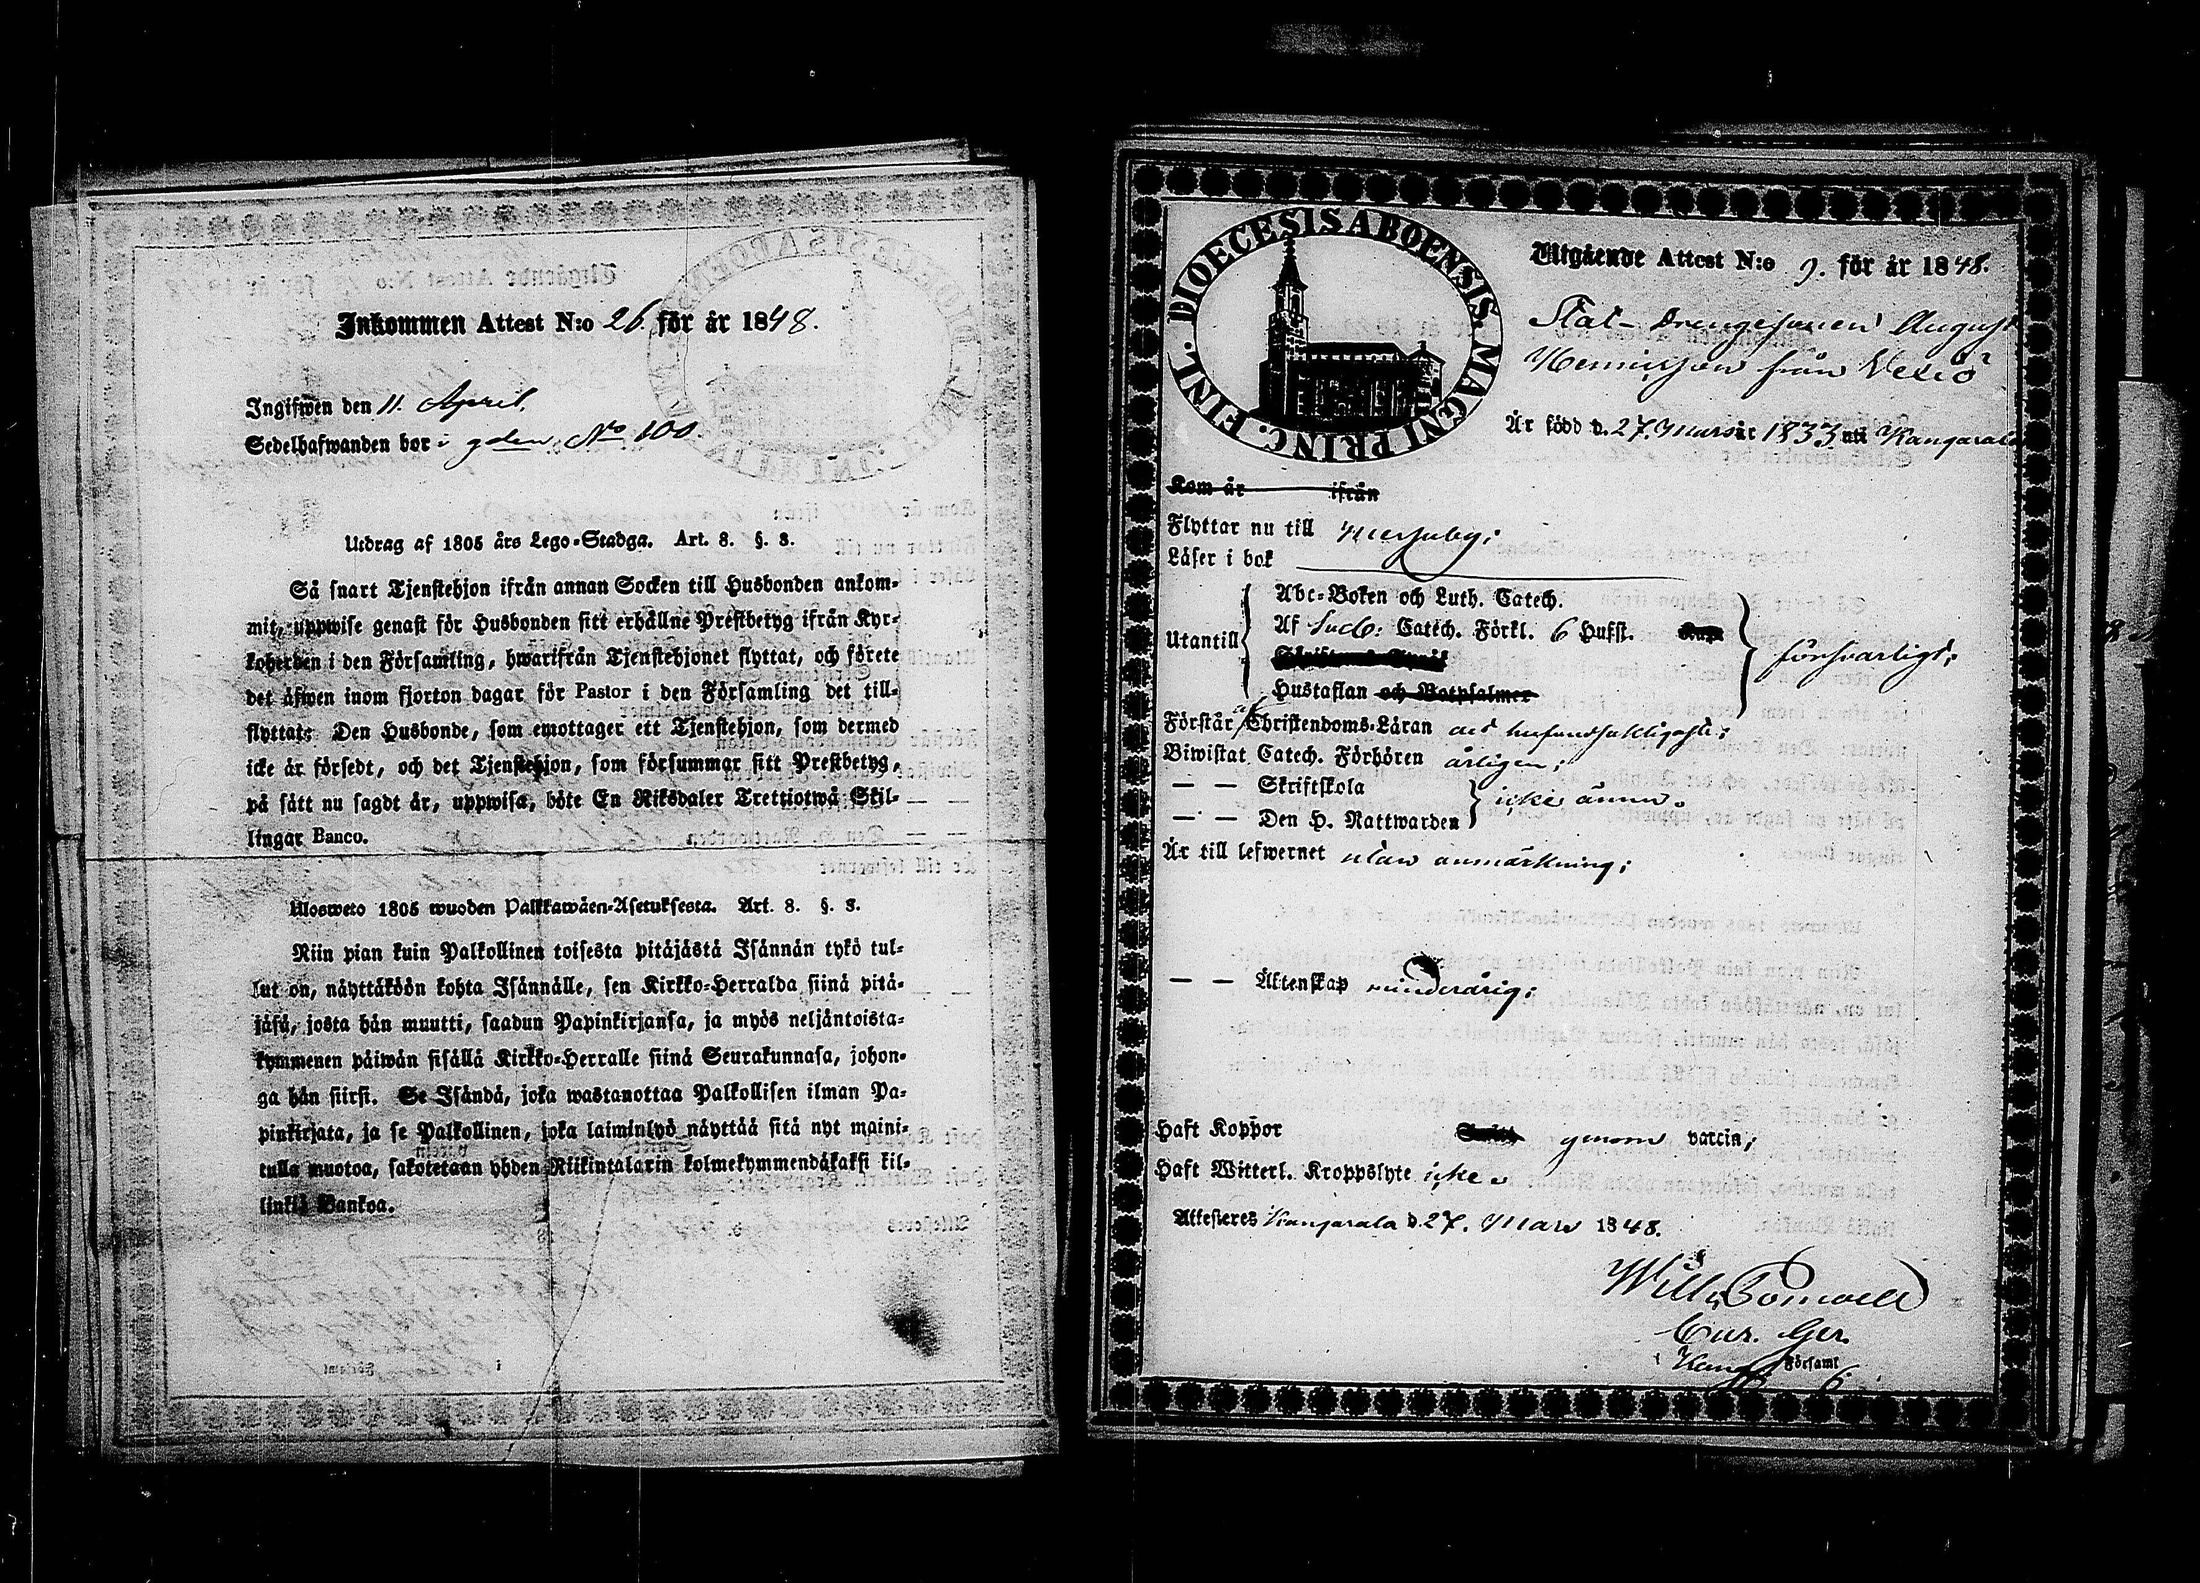 Inkommen Attest N:o 26. för år 1848.
Ingifwen den 11. April.
Sedelhafwanden bor i gden No 100.
Utdrag af 1805 års Lego-Stadga. Art. 8. §. 8.
Så snart Tjenstehjon ifrån annan Socken till Husbonden ankom-
mit, uppwise genast för Husbonden sitt erhållne Prestbetyg ifrån Kyr-
koherden i den Församling, hwarifrån Tjenstehjonet flyttat, och förete
det äfwen inom fjorton dagar för Pastor i den Församling det till-
flyttat: Den Husbonde, som emottager ett Tjenstehjon, som dermed
icke är försedt, och det Tjenstehjon, som försummar sitt Prestbetyg,
på sätt nu sagdt är, uppwisa, böte En Riksdaler Trettiotwå Skil-
lingar Banco.
Ulosweto 1805 wuoden Palkkawäen-Asetuksesta. Art. 8. §. 8.
Niin pian kuin Palkollinen toisesta pitäjästä Isännän tykö tul-
lut on, näyttäköön kohta Isännälle, sen Kirkko-Herralda siinä pitä-
jäsä, josta hän muutti, saadun Papinkirjansa, ja myös neljäntoista-
kymmenen päiwän sisällä Kirkko-Herralle siinä Seurakunnasa, johon-
ga hän siirsi. Se Isändä, joka wastanottaa Palkollisen ilman Pa-
pinkirjata, ja se Palkollinen, joka laiminlyö näyttää sitä nyt maini-
tulla muotoa, sakotetaan yhden Riikintalarin kolmekymmendäkaksi kil-
linkiä Bankoa.
DIOECESIS ABOENSIS. MAGNI PRINC. FINL.
Utgående Attest N:o 9. för år 1848.
Stat-Drengesonen August
Henriksson från Vexiö
Är född d. 27. Mars år 1833 uti Kangasala
Kom år ifrån
Flyttar nu till Messuby;
Läser i bok
Utantill
Abc-Boken och Luth. Catech.
Af Sveb: Catech. Förkl. 6 Hufst.
Hustaflan och Botpsalmer
försvarligt;
Förstår af Christendoms-Läran det hufvudsakligaste;
Biwistat Catech. Förhören årligen;
— — Skriftskola
— — Den H. Nattwarden
icke ännu.
Är till lefwernet utan anmärkning;
— — Äktenskap minderårig;
Haft Koppor genom vaccin;
Haft Witterl. Kroppslyte icke.
Attesteras Kangasala d. 27. Mars 1848.
Cur. Ger.
i Kang Församl